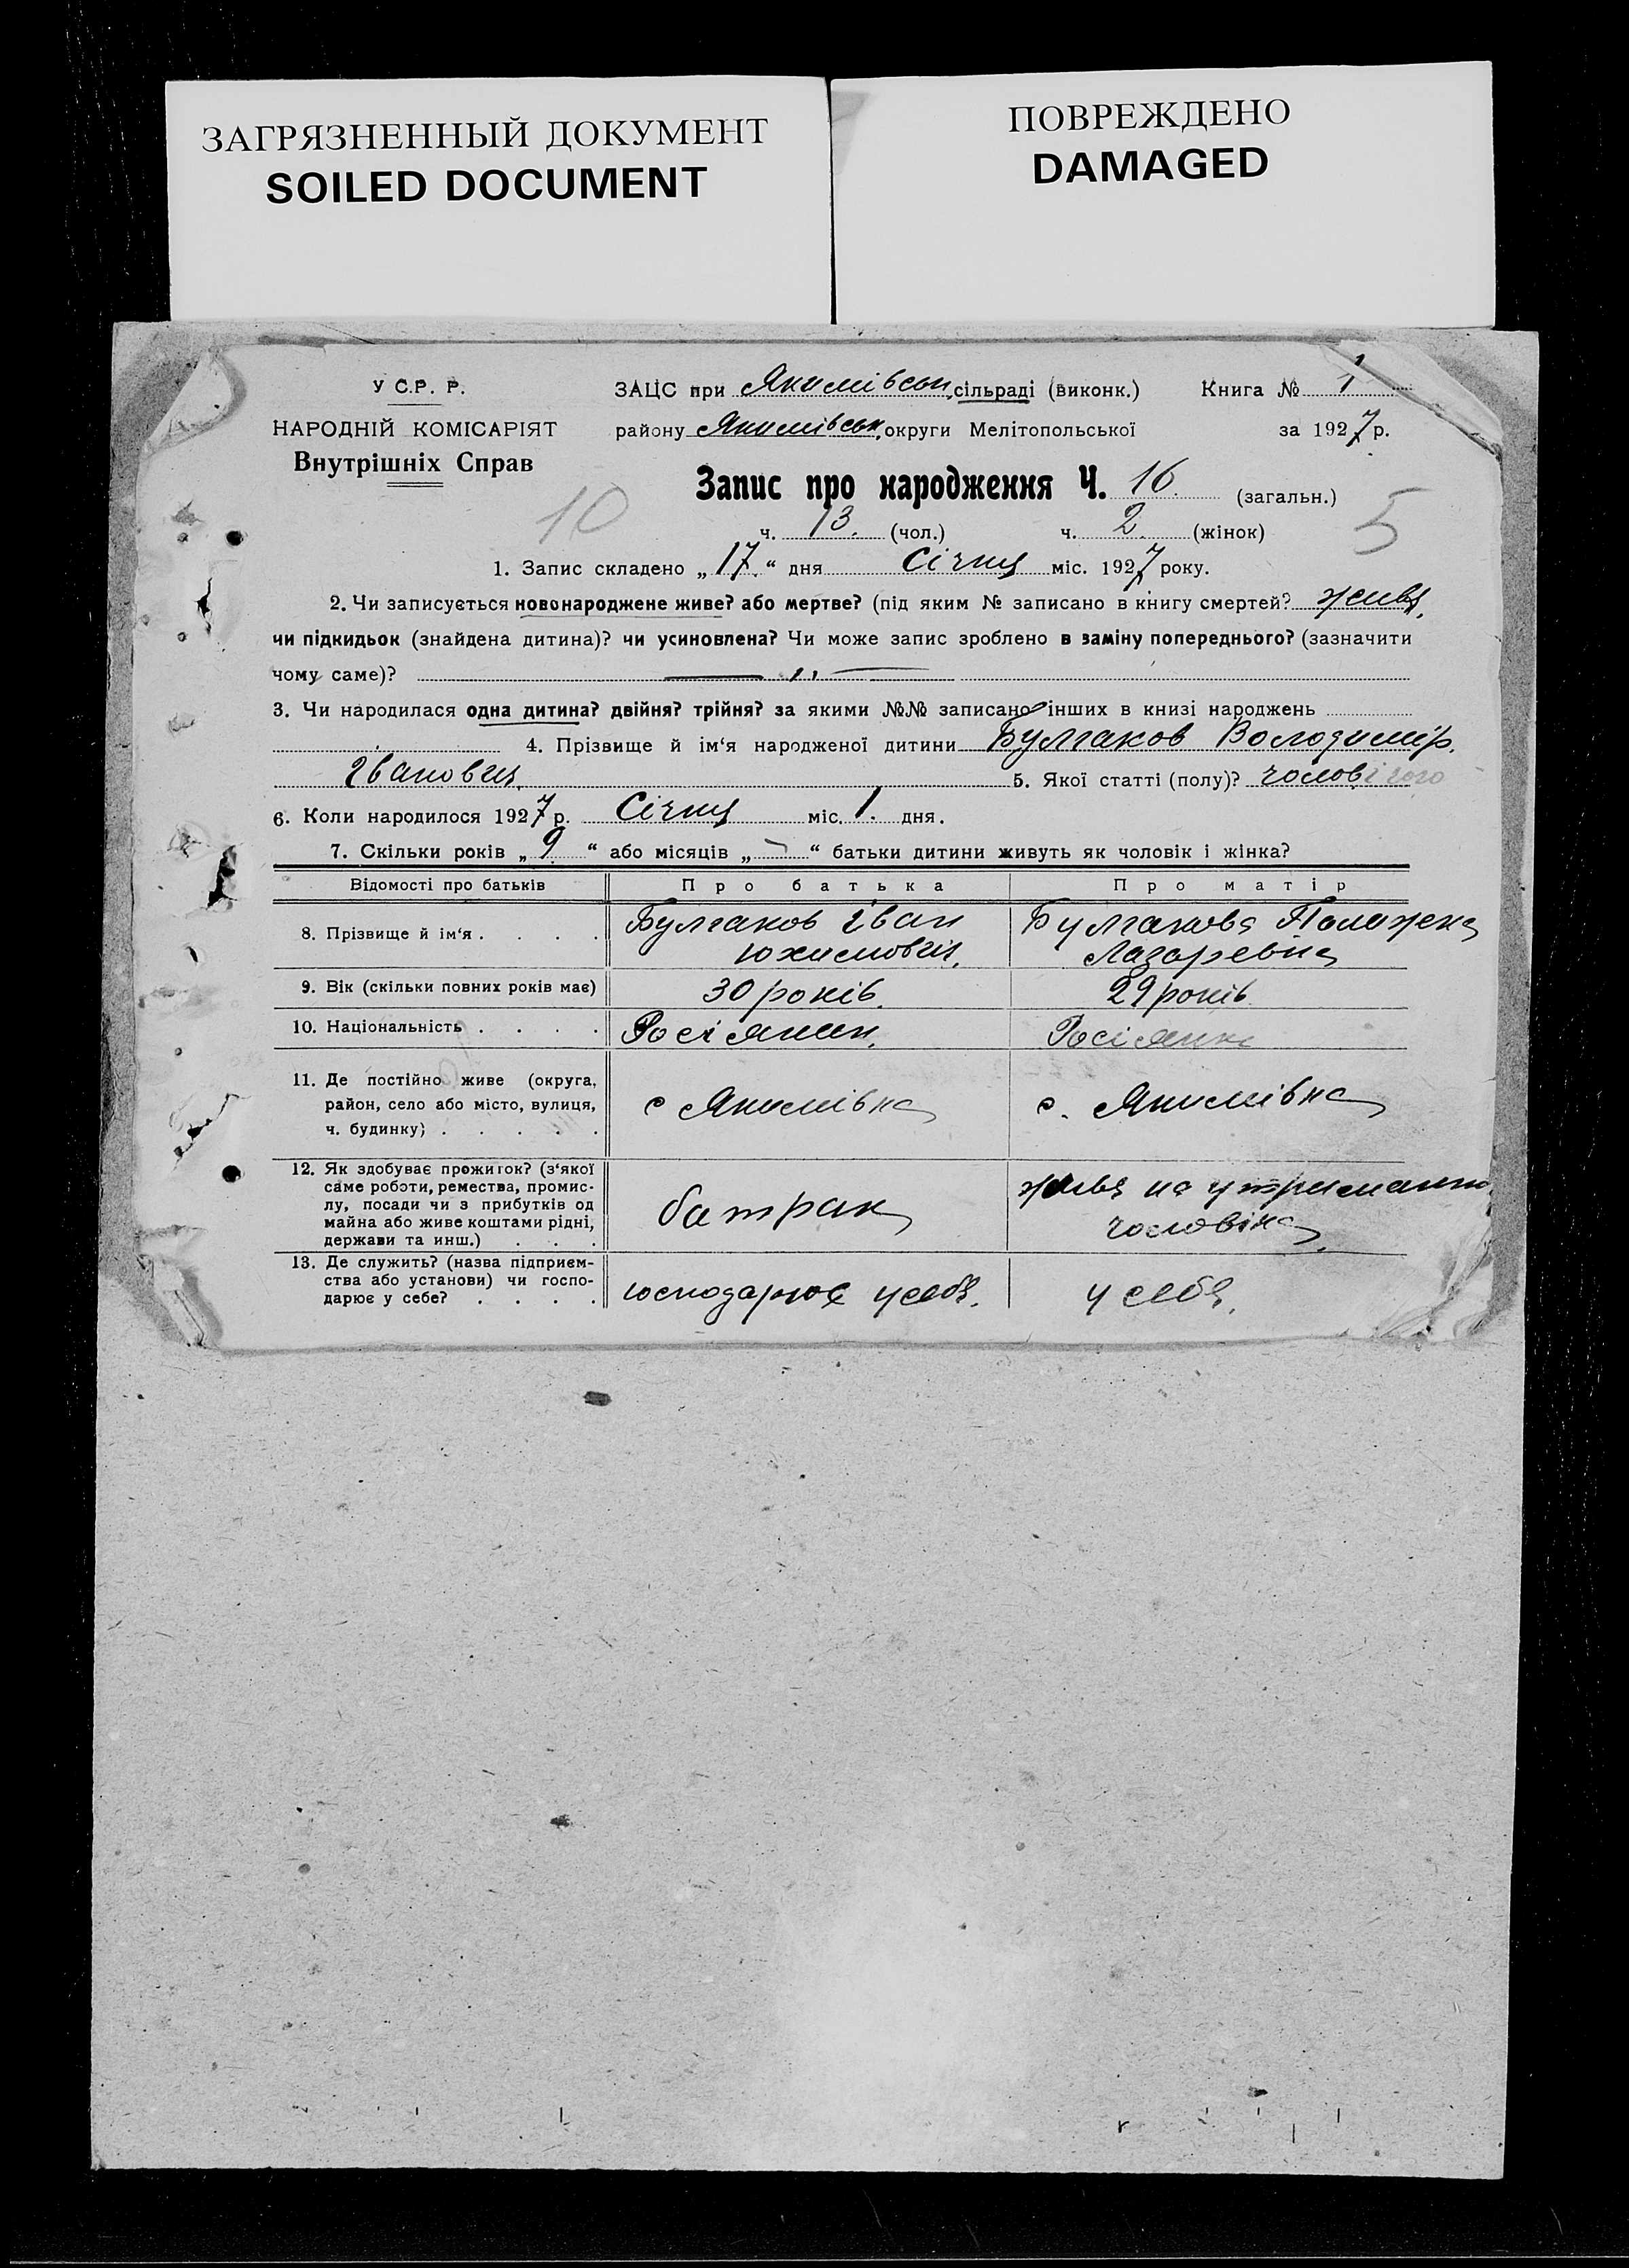 ЗАГРЯЗНЕННЫЙ ДОКУМЕНТ
SOILED DOCUMENT
ПОВРЕЖДЕНО
DAMAGED
У С.Р. Р.
НАРОДНІЙ КОМІСАРІЯТ
Внутрішніх Справ
ЗАЦС при Якимівськ. сільраді (виконк.) Книга № 1
району Якимівськ. округи Мелітопольської за 1927 р.
Запис про народження Ч. 16. (загальн.)
10 5
ч. 13. (чол.) ч. 2. (жінок)
1. Запис складено „17.“ дня Січня міс. 1927 року.
2. Чи записується новонароджене живе? або мертве? (під яким № записано в книгу смертей? живе,
чи підкидьок (знайдена дитина)? чи усиновлена? Чи може запис зроблено в заміну попереднього? (зазначити
чому саме)? — „ —
3. Чи народилася одна дитина? двійня? трійня? за якими №№ записано інших в книзі народжень
4. Прізвище й ім‘я народженої дитини Булгаков Володимір.
Іванович. 5. Якої статті (полу)? чоловічого
6. Коли народилося 1927 р. Січня міс. 1. дня.
7. Скільки років „ 9 “ або місяців „ “ батьки дитини живуть як чоловік і жінка?
Відомості про батьків Про батька Про матір
8. Прізвище й ім‘я . . . . Булгаков Іван Булгакова Пологжека
Юхимович. Лазаревна
9. Вік (скільки повних років має) 30 років. 29 років
10. Національність . . . . Росіянин. Росіянка
11. Де постійно живе (округа,
район, село або місто, вулиця,
ч. будинку) . . . . .
с Якимівка с. Якимівка
12. Як здобуває прожиток? (з‘якої
саме роботи, ремества, промис-
лу, посади чи з прибутків од
майна або живе коштами рідні,
держави та инш.) . . .
батрак живе на утриманні
чоловіка.
13. Де служить? (назва підприєм-
ства або установи) чи госпо-
дарює у себе? . . . .
господарює у себе. у себе.